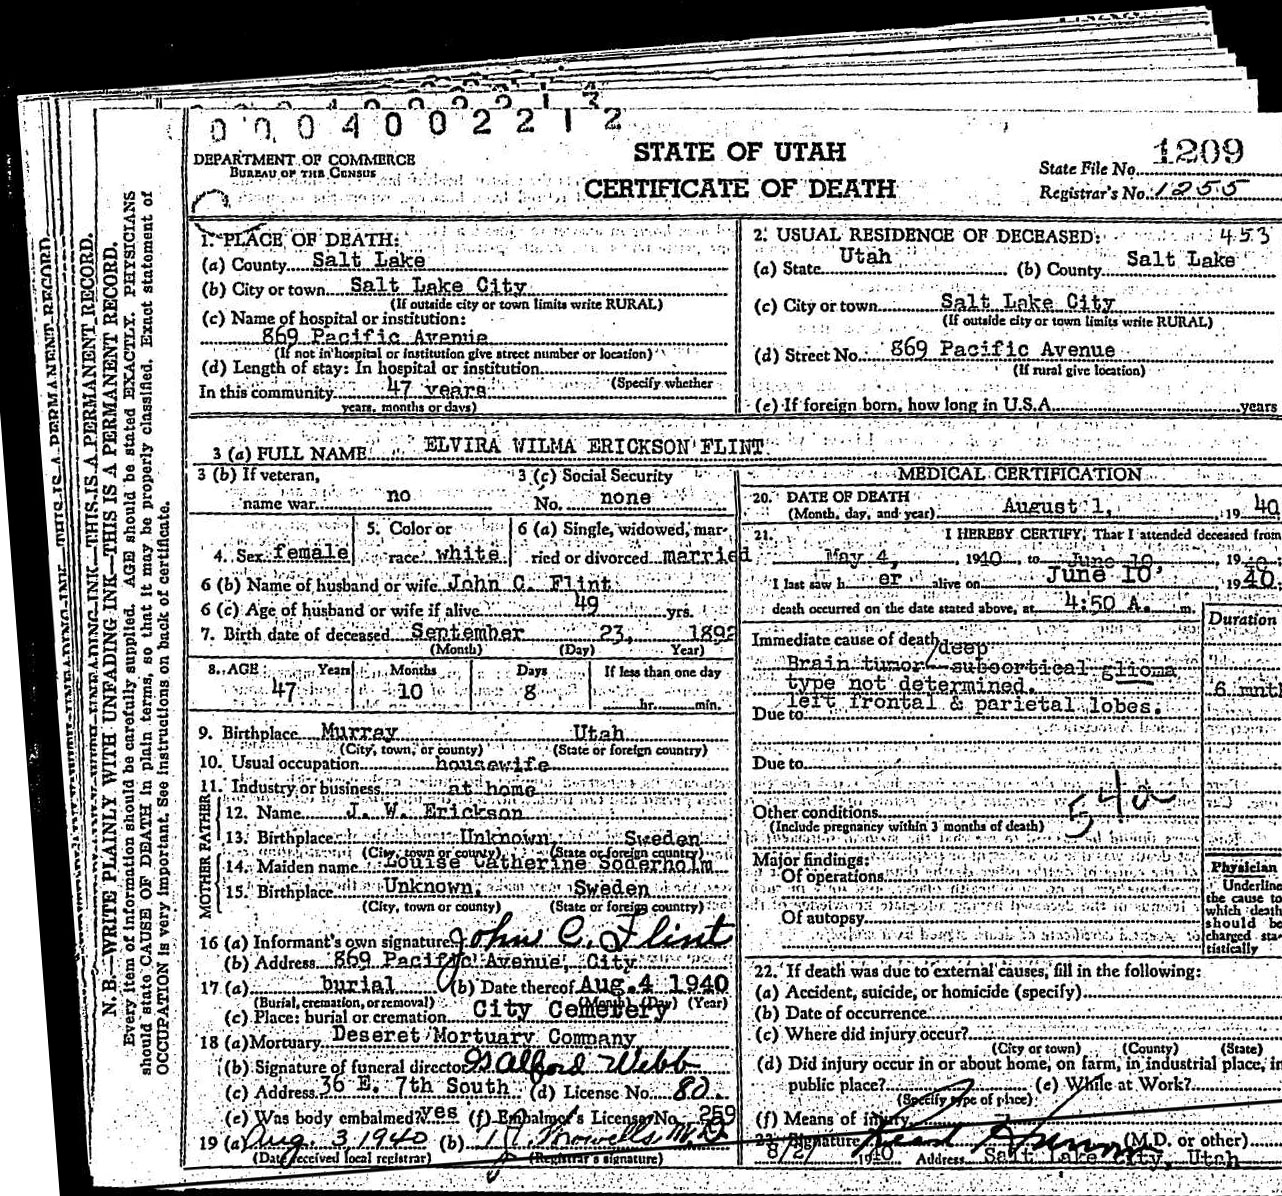 0 0 0 4 0 0 2 2 1 2
DEPARTMENT OF COMMERCE
BUREAU OF THE CENSUS
STATE OF UTAH
CERTIFICATE OF DEATH
State File No. 1209
Registrar's No. 1255
N. B.—WRITE PLAINLY WITH UNFADING INK—THIS IS A PERMANENT RECORD.
Every item of information should be carefully supplied. AGE should be stated EXACTLY. PHYSICIANS
should state CAUSE OF DEATH in plain terms, so that it may be properly classified. Exact statement of
OCCUPATION is very important. See instructions on back of certificate.
1. PLACE OF DEATH:
(a) County Salt Lake
(b) City or town Salt Lake City
(If outside city or town limits write RURAL)
(c) Name of hospital or institution:
869 Pacific Avenue
(If not in hospital or institution give street number or location)
(d) Length of stay: In hospital or institution
(Specify whether
In this community 47 years
years, months or days)
2. USUAL RESIDENCE OF DECEASED: 453
(a) State Utah (b) County Salt Lake
(c) City or town Salt Lake City
(If outside city or town limits write RURAL)
(d) Street No. 869 Pacific Avenue
(If rural give location)
(e) If foreign born, how long in U.S.A. years
3 (a) FULL NAME ELVIRA WILMA ERICKSON FLINT
3 (b) If veteran,
name war no
3 (c) Social Security
No. none
4. Sex female
5. Color or
race white
6 (a) Single, widowed, mar-
ried or divorced married
6 (b) Name of husband or wife John C. Flint
6 (c) Age of husband or wife if alive 49 yrs.
7. Birth date of deceased September 23, 1892
(Month) (Day) Year)
8. AGE Years Months Days If less than one day
47 10 8 hr. min.
9. Birthplace Murray Utah
(City, town, or county) (State or foreign country)
10. Usual occupation housewife
11. Industry or business at home
FATHER
12. Name J. W. Erickson
13. Birthplace Unknown Sweden
(City, town or county) (State or foreign country)
MOTHER
14. Maiden name Louise Catherine Soderholm
15. Birthplace Unknown, Sweden
(City, town or county) (State or foreign country)
16 (a) Informant's own signature John C. Flint
(b) Address 869 Pacific Avenue, City
17 (a) burial (b) Date thereof Aug. 4 1940
(Burial, cremation, or removal) (Month) (Day) (Year)
(c) Place: burial or cremation City Cemetery
18 (a) Mortuary Deseret Mortuary Company
(b) Signature of funeral director Galford Webb
(c) Address 36 E. 7th South (d) License No. 80
(e) Was body embalmed? yes (f) Embalmer's License No. 259
19 (a) Aug 3 1940 (b) M.D.
(Date received local registrar) (Registrar's signature)
MEDICAL CERTIFICATION
20. DATE OF DEATH
(Month, day, and year) August 1, 19 40
21. I HEREBY CERTIFY, That I attended deceased from
May 4, 1940 to June 10 1940
I last saw her alive on June 10, 1940.
death occurred on the date stated above, at 4:50 A. m.
Duration
Immediate cause of death
Brain tumor /deep subcortical glioma
type not determined. 6 mnths
left frontal & parietal lobes.
Due to
Due to
Other conditions 54a
(Include pregnancy within 3 months of death)
Major findings:
Of operations
Of autopsy
Physician
Underline
the cause to
which death
should be
charged sta-
tistically
22. If death was due to external causes, fill in the following:
(a) Accident, suicide, or homicide (specify)
(b) Date of occurrence
(c) Where did injury occur?
(City or town) (County) (State)
(d) Did injury occur in or about home, on farm, in industrial place, in
public place? (e) While at Work?
(Specify type of place)
(f) Means of injury
23. Signature (M.D. or other)
8/2/ 1940 Address Salt Lake City, Utah